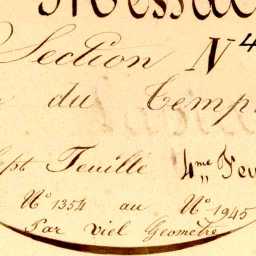 Messac
Section N
du Temp
Sept Feuille 4me Feu
N° 1354 au N° 1945
Par Viel Géomètre